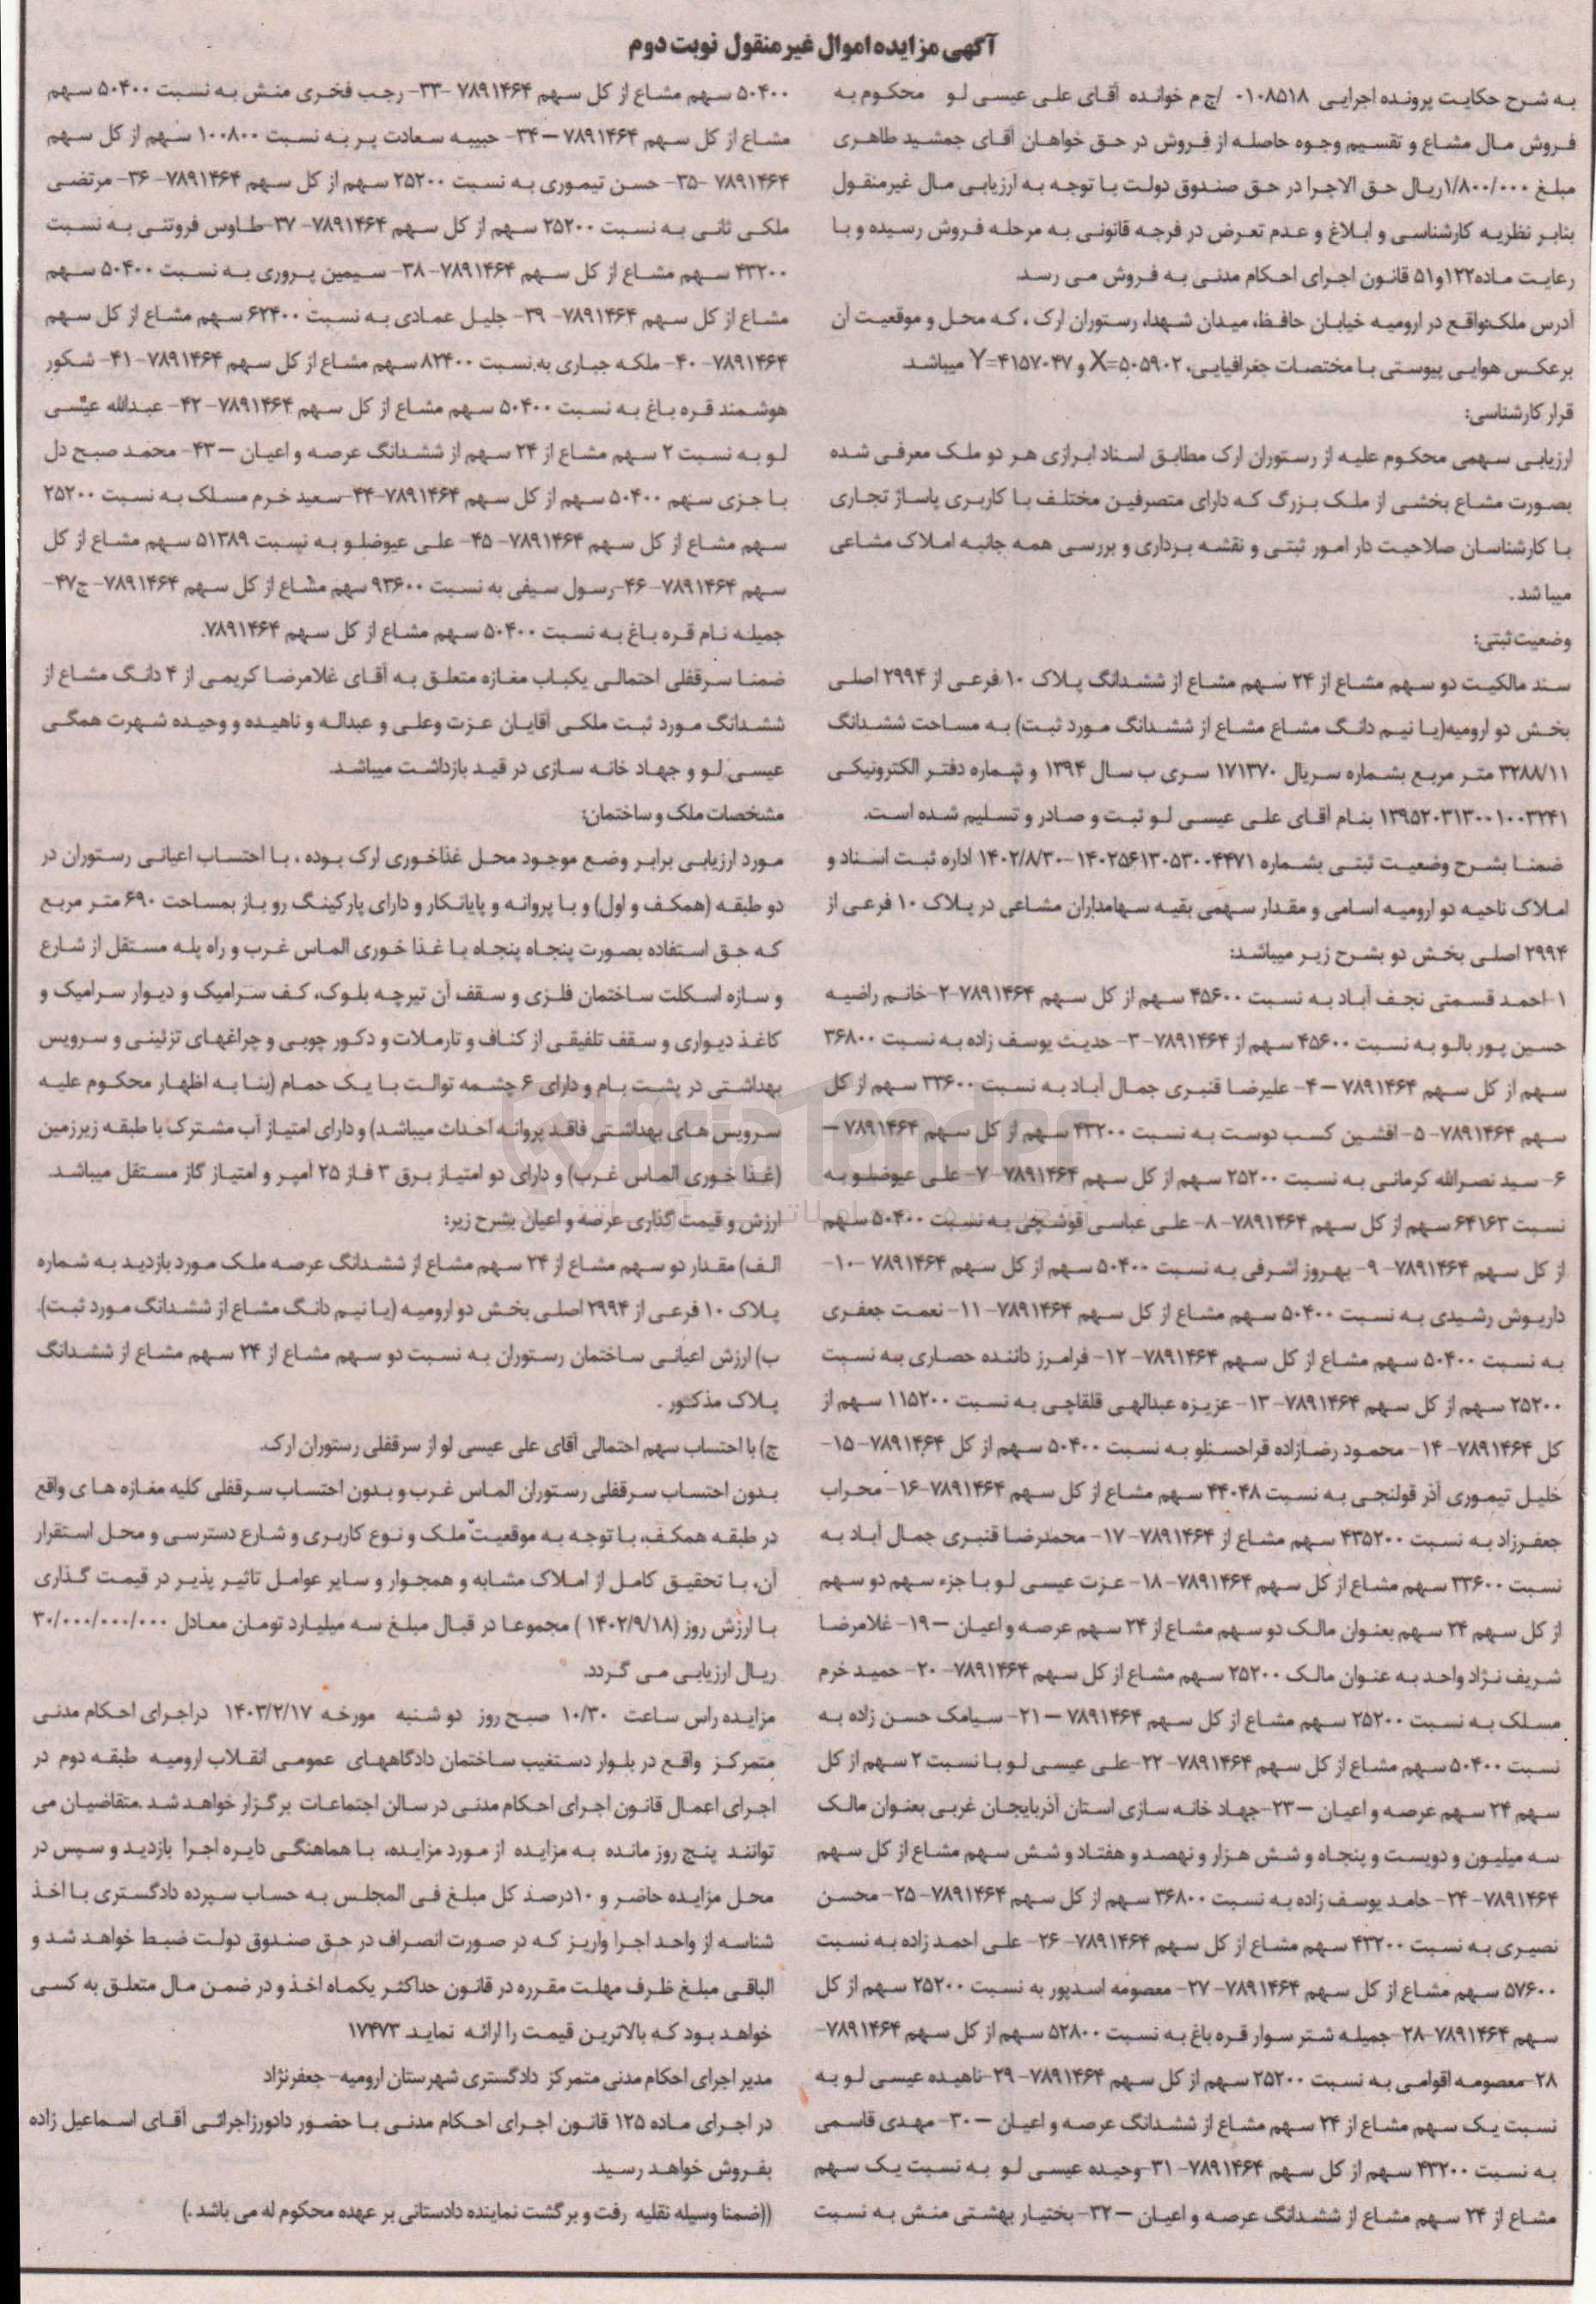 آگهی مزایده اموال غیرمنقول نوبت دوم
به شرح حکایت پرونده اجرایی ۰۱۰۸۵۱۸ /ج م خوانده آقای علی عیسی لو محکوم به
فروش مال مشاع و تقسیم وجوه حاصله از فروش در حق خواهان آقای جمشید طاهری
مبلغ ۱/۸۰۰/۰۰۰ریال حق الاجرا در حق صندوق دولت با توجه به ارزیابی مال غیرمنقول
بنابر نظریه کارشناسی و ابلاغ و عدم تعرض در فرجه قانونی به مرحله فروش رسیده و با
رعایت ماده۱۲۲و۵۱ قانون اجرای احکام مدنی به فروش می رسد.
آدرس ملک:واقع در ارومیه خیابان حافظ، میدان شهدا، رستوران ارک ، که محل و موقعیت آن
برعکس هوایی پیوستی با مختصات جغرافیایی، X=۵۰۵۹۰۲ و Y=۴۱۵۷۰۴۷ میباشد.
قرار کارشناسی:
ارزیابی سهمی محکوم علیه از رستوران ارک مطابق اسناد ابرازی هر دو ملک معرفی شده
بصورت مشاع بخشی از ملک بزرگ که دارای متصرفین مختلف با کاربری پاساژ تجاری
با کارشناسان صلاحیت دار امور ثبتی و نقشه برداری و بررسی همه جانبه املاک مشاعی
میبا شد .
وضعیت ثبتی:
سند مالکیت دو سهم مشاع از ۲۴ سهم مشاع از ششدانگ پلاک ۱۰ فرعی از ۲۹۹۴ اصلی
بخش دو ارومیه(یا نیم دانگ مشاع مشاع از ششدانگ مورد ثبت) به مساحت ششدانگ
۳۲۸۸/۱۱ متر مربع بشماره سریال ۱۷۱۳۷۰ سری ب سال ۱۳۹۴ و شماره دفتر الکترونیکی
۱۳۹۵۲۰۳۱۳۰۰۱۰۰۳۲۴۱ بنام آقای علی عیسی لو ثبت و صادر و تسلیم شده است.
ضمنا بشرح وضعیت ثبتی بشماره ۱۴۰۲۵۶۱۳۰۵۳۰۰۴۴۷۱ -۱۴۰۲/۸/۳۰ اداره ثبت اسناد و
املاک ناحیه دو ارومیه اسامی و مقدار سهمی بقیه سهامداران مشاعی در پلاک ۱۰ فرعی از
۲۹۹۴ اصلی بخش دو بشرح زیر میباشد:
۱-احمد قسمتی نجف آباد به نسبت ۴۵۶۰۰ سهم از کل سهم ۷۸۹۱۴۶۴-۲-خانم راضیه
حسین پور بالو به نسبت ۴۵۶۰۰ سهم از ۷۸۹۱۴۶۴- ۳- حدیث یوسف زاده به نسبت ۳۶۸۰۰
سهم از کل سهم ۷۸۹۱۴۶۴ – ۴- علیرضا قنبری جمال آباد به نسبت ۳۳۶۰۰ سهم از کل
سهم ۷۸۹۱۴۶۴- ۵- افشین کسب دوست به نسبت ۴۳۲۰۰ سهم از کل سهم ۷۸۹۱۴۶۴ –
۶- سید نصرالله کرمانی به نسبت ۲۵۲۰۰ سهم از کل سهم ۷۸۹۱۴۶۴- ۷- علی عیوضلو به
نسبت ۶۴۱۶۳ سهم از کل سهم ۷۸۹۱۴۶۴- ۸- علی عباسی قوشچی به نسبت ۵۰۴۰۰ سهم
از کل سهم ۷۸۹۱۴۶۴- ۹- بهروز اشرفی به نسبت ۵۰۴۰۰ سهم از کل سهم ۷۸۹۱۴۶۴ -۱۰-
داریوش رشیدی به نسبت ۵۰۴۰۰ سهم مشاع از کل سهم ۷۸۹۱۴۶۴- ۱۱- نعمت جعفری
به نسبت ۵۰۴۰۰ سهم مشاع از کل سهم ۷۸۹۱۴۶۴- ۱۲- فرامرز داننده حصاری به نسبت
۲۵۲۰۰ سهم از کل سهم ۷۸۹۱۴۶۴- ۱۳- عزیزه عبدالهی قلقاچی به نسبت ۱۱۵۲۰۰ سهم از
کل ۷۸۹۱۴۶۴- ۱۴- محمود رضازاده قراحسنلو به نسبت ۵۰۴۰۰ سهم از کل ۷۸۹۱۴۶۴- ۱۵-
خلیل تیموری آذر قولنجی به نسبت ۴۴۰۴۸ سهم مشاع از کل سهم ۷۸۹۱۴۶۴-۱۶- محراب
جعفرزاد به نسبت ۴۳۵۲۰۰ سهم مشاع از ۷۸۹۱۴۶۴- ۱۷- محمدرضا قنبری جمال آباد به
نسبت ۳۳۶۰۰ سهم مشاع از کل سهم ۷۸۹۱۴۶۴- ۱۸- عزت عیسی لو با جزء سهم دو سهم
از کل سهم ۲۴ سهم بعنوان مالک دو سهم مشاع از ۲۴ سهم عرصه و اعیان –۱۹- غلامرضا
شریف نژاد واحد به عنوان مالک ۲۵۲۰۰ سهم مشاع از کل سهم ۷۸۹۱۴۶۴- ۲۰- حمید خرم
مسلک به نسبت ۲۵۲۰۰ سهم مشاع از کل سهم ۷۸۹۱۴۶۴ –۲۱- سیامک حسن زاده به
نسبت ۵۰۴۰۰ سهم مشاع از کل سهم ۷۸۹۱۴۶۴- ۲۲-علی عیسی لو با نسبت ۲ سهم از کل
سهم ۲۴ سهم عرصه و اعیان –۲۳-جهاد خانه سازی استان آذربایجان غربی بعنوان مالک
سه میلیون و دویست و پنجاه و شش هزار و نهصد و هفتاد و شش سهم مشاع از کل سهم
۷۸۹۱۴۶۴- ۲۴- حامد یوسف زاده به نسبت ۳۶۸۰۰ سهم از کل سهم ۷۸۹۱۴۶۴- ۲۵- محسن
نصیری به نسبت ۴۳۲۰۰ سهم مشاع از کل سهم ۷۸۹۱۴۶۴- ۲۶- علی احمد زاده به نسبت
۵۷۶۰۰ سهم مشاع از کل سهم ۷۸۹۱۴۶۴- ۲۷- معصومه اسدپور به نسبت ۲۵۲۰۰ سهم از کل
سهم ۷۸۹۱۴۶۴-۲۸-جمیله شتر سوار قره باغ به نسبت ۵۲۸۰۰ سهم از کل سهم ۷۸۹۱۴۶۴-
۲۸-معصومه اقوامی به نسبت ۲۵۲۰۰ سهم از کل سهم ۷۸۹۱۴۶۴- ۲۹-ناهیده عیسی لو به
نسبت یک سهم مشاع از ۲۴ سهم مشاع از ششدانگ عرصه و اعیان –۳۰- مهدی قاسمی
به نسبت ۴۳۲۰۰ سهم از کل سهم ۷۸۹۱۴۶۴- ۳۱-وحیده عیسی لو به نسبت یک سهم
مشاع از ۲۴ سهم مشاع از ششدانگ عرصه و اعیان –۳۲- بختیار بهشتی منش به نسبت
۵۰۴۰۰ سهم مشاع از کل سهم ۷۸۹۱۴۶۴ -۳۳- رجب فخری منش به نسبت ۵۰۴۰۰ سهم
مشاع از کل سهم ۷۸۹۱۴۶۴ –۳۴- حبیبه سعادت پر به نسبت ۱۰۰۸۰۰ سهم از کل سهم
۷۸۹۱۴۶۴ -۳۵- حسن تیموری به نسبت ۲۵۲۰۰ سهم از کل سهم ۷۸۹۱۴۶۴- ۳۶- مرتضی
ملکی ثانی به نسبت ۲۵۲۰۰ سهم از کل سهم ۷۸۹۱۴۶۴- ۳۷-طاوس فروتنی به نسبت
۴۳۲۰۰ سهم مشاع از کل سهم ۷۸۹۱۴۶۴- ۳۸- سیمین پروری به نسبت ۵۰۴۰۰ سهم
مشاع از کل سهم ۷۸۹۱۴۶۴- ۳۹- جلیل عمادی به نسبت ۶۲۴۰۰ سهم مشاع از کل سهم
۷۸۹۱۴۶۴- ۴۰- ملکه جباری به نسبت ۸۲۴۰۰ سهم مشاع از کل سهم ۷۸۹۱۴۶۴- ۴۱- شکور
هوشمند قره باغ به نسبت ۵۰۴۰۰ سهم مشاع از کل سهم ۷۸۹۱۴۶۴- ۴۲- عبدالله عیسی
لو به نسبت ۲ سهم مشاع از ۲۴ سهم از ششدانگ عرصه و اعیان –۴۳- محمد صبح دل
با جزی سهم ۵۰۴۰۰ سهم از کل سهم ۷۸۹۱۴۶۴-۴۴-سعید خرم مسلک به نسبت ۲۵۲۰۰
سهم مشاع از کل سهم ۷۸۹۱۴۶۴- ۴۵- علی عیوضلو به نسبت ۵۱۳۸۹ سهم مشاع از کل
سهم ۷۸۹۱۴۶۴- ۴۶-رسول سیفی به نسبت ۹۳۶۰۰ سهم مشاع از کل سهم ۷۸۹۱۴۶۴- ج۴۷-
جمیله نام قره باغ به نسبت ۵۰۴۰۰ سهم مشاع از کل سهم ۷۸۹۱۴۶۴.
ضمنا سرقفلی احتمالی یکباب مغازه متعلق به آقای غلامرضا کریمی از ۴ دانگ مشاع از
ششدانگ مورد ثبت ملکی آقایان عزت وعلی و عبداله و ناهیده و وحیده شهرت همگی
عیسی لو و جهاد خانه سازی در قید بازداشت میباشد.
مشخصات ملک و ساختمان:
مورد ارزیابی برابر وضع موجود محل غذاخوری ارک بوده ، با احتساب اعیانی رستوران در
دو طبقه (همکف و اول) و با پروانه و پایانکار و دارای پارکینگ رو باز بمساحت ۶۹۰ متر مربع
که حق استفاده بصورت پنجاه پنجاه با غذا خوری الماس غرب و راه پله مستقل از شارع
و سازه اسکلت ساختمان فلزی و سقف آن تیرچه بلوک، کف سرامیک و دیوار سرامیک و
کاغذ دیواری و سقف تلفیقی از کناف و تارملات و دکور چوبی و چراغهای تزئینی و سرویس
بهداشتی در پشت بام و دارای ۶ چشمه توالت با یک حمام (بنا به اظهار محکوم علیه
سرویس های بهداشتی فاقد پروانه احداث میباشد) و دارای امتیاز آب مشترک با طبقه زیرزمین
(غذا خوری الماس غرب) و دارای دو امتیاز برق ۳ فاز ۲۵ آمپر و امتیاز گاز مستقل میباشد.
ارزش و قیمت گذاری عرصه و اعیان بشرح زیر:
الف) مقدار دو سهم مشاع از ۲۴ سهم مشاع از ششدانگ عرصه ملک مورد بازدید به شماره
پلاک ۱۰ فرعی از ۲۹۹۴ اصلی بخش دو ارومیه (یا نیم دانگ مشاع از ششدانگ مورد ثبت).
ب) ارزش اعیانی ساختمان رستوران به نسبت دو سهم مشاع از ۲۴ سهم مشاع از ششدانگ
پلاک مذکور .
ج) با احتساب سهم احتمالی آقای علی عیسی لو از سرقفلی رستوران ارک.
بدون احتساب سرقفلی رستوران الماس غرب و بدون احتساب سرقفلی کلیه مغازه ها ی واقع
در طبقه همکف، با توجه به موقعیت ملک و نوع کاربری و شارع دسترسی و محل استقرار
آن، با تحقیق کامل از املاک مشابه و همجوار و سایر عوامل تاثیر پذیر در قیمت گذاری
با ارزش روز (۱۴۰۲/۹/۱۸ ) مجموعا در قبال مبلغ سه میلیارد تومان معادل ۳۰/۰۰۰/۰۰۰/۰۰۰
ریال ارزیابی می گردد.
مزایده راس ساعت ۱۰/۳۰ صبح روز دو شنبه مورخه ۱۴۰۳/۲/۱۷ دراجرای احکام مدنی
متمرکز واقع در بلوار دستغیب ساختمان دادگاههای عمومی انقلاب ارومیه طبقه دوم در
اجرای اعمال قانون اجرای احکام مدنی در سالن اجتماعات برگزار خواهد شد .متقاضیان می
توانند پنج روز مانده به مزایده از مورد مزایده، با هماهنگی دایره اجرا بازدید و سپس در
محل مزایده حاضر و ۱۰درصد کل مبلغ فی المجلس به حساب سپرده دادگستری با اخذ
شناسه از واحد اجرا واریز که در صورت انصراف در حق صندوق دولت ضبط خواهد شد و
الباقی مبلغ ظرف مهلت مقرره در قانون حداکثر یکماه اخذ و در ضمن مال متعلق به کسی
خواهد بود که بالاترین قیمت را ارائه نماید. ۱۷۴۷۳
مدیر اجرای احکام مدنی متمرکز دادگستری شهرستان ارومیه- جعفرنژاد
در اجرای ماده ۱۲۵ قانون اجرای احکام مدنی با حضور دادورزاجرائی آقای اسماعیل زاده
بفروش خواهد رسید.
((ضمنا وسیله نقلیه رفت و برگشت نماینده دادستانی بر عهده محکوم له می باشد .)
AriaTender